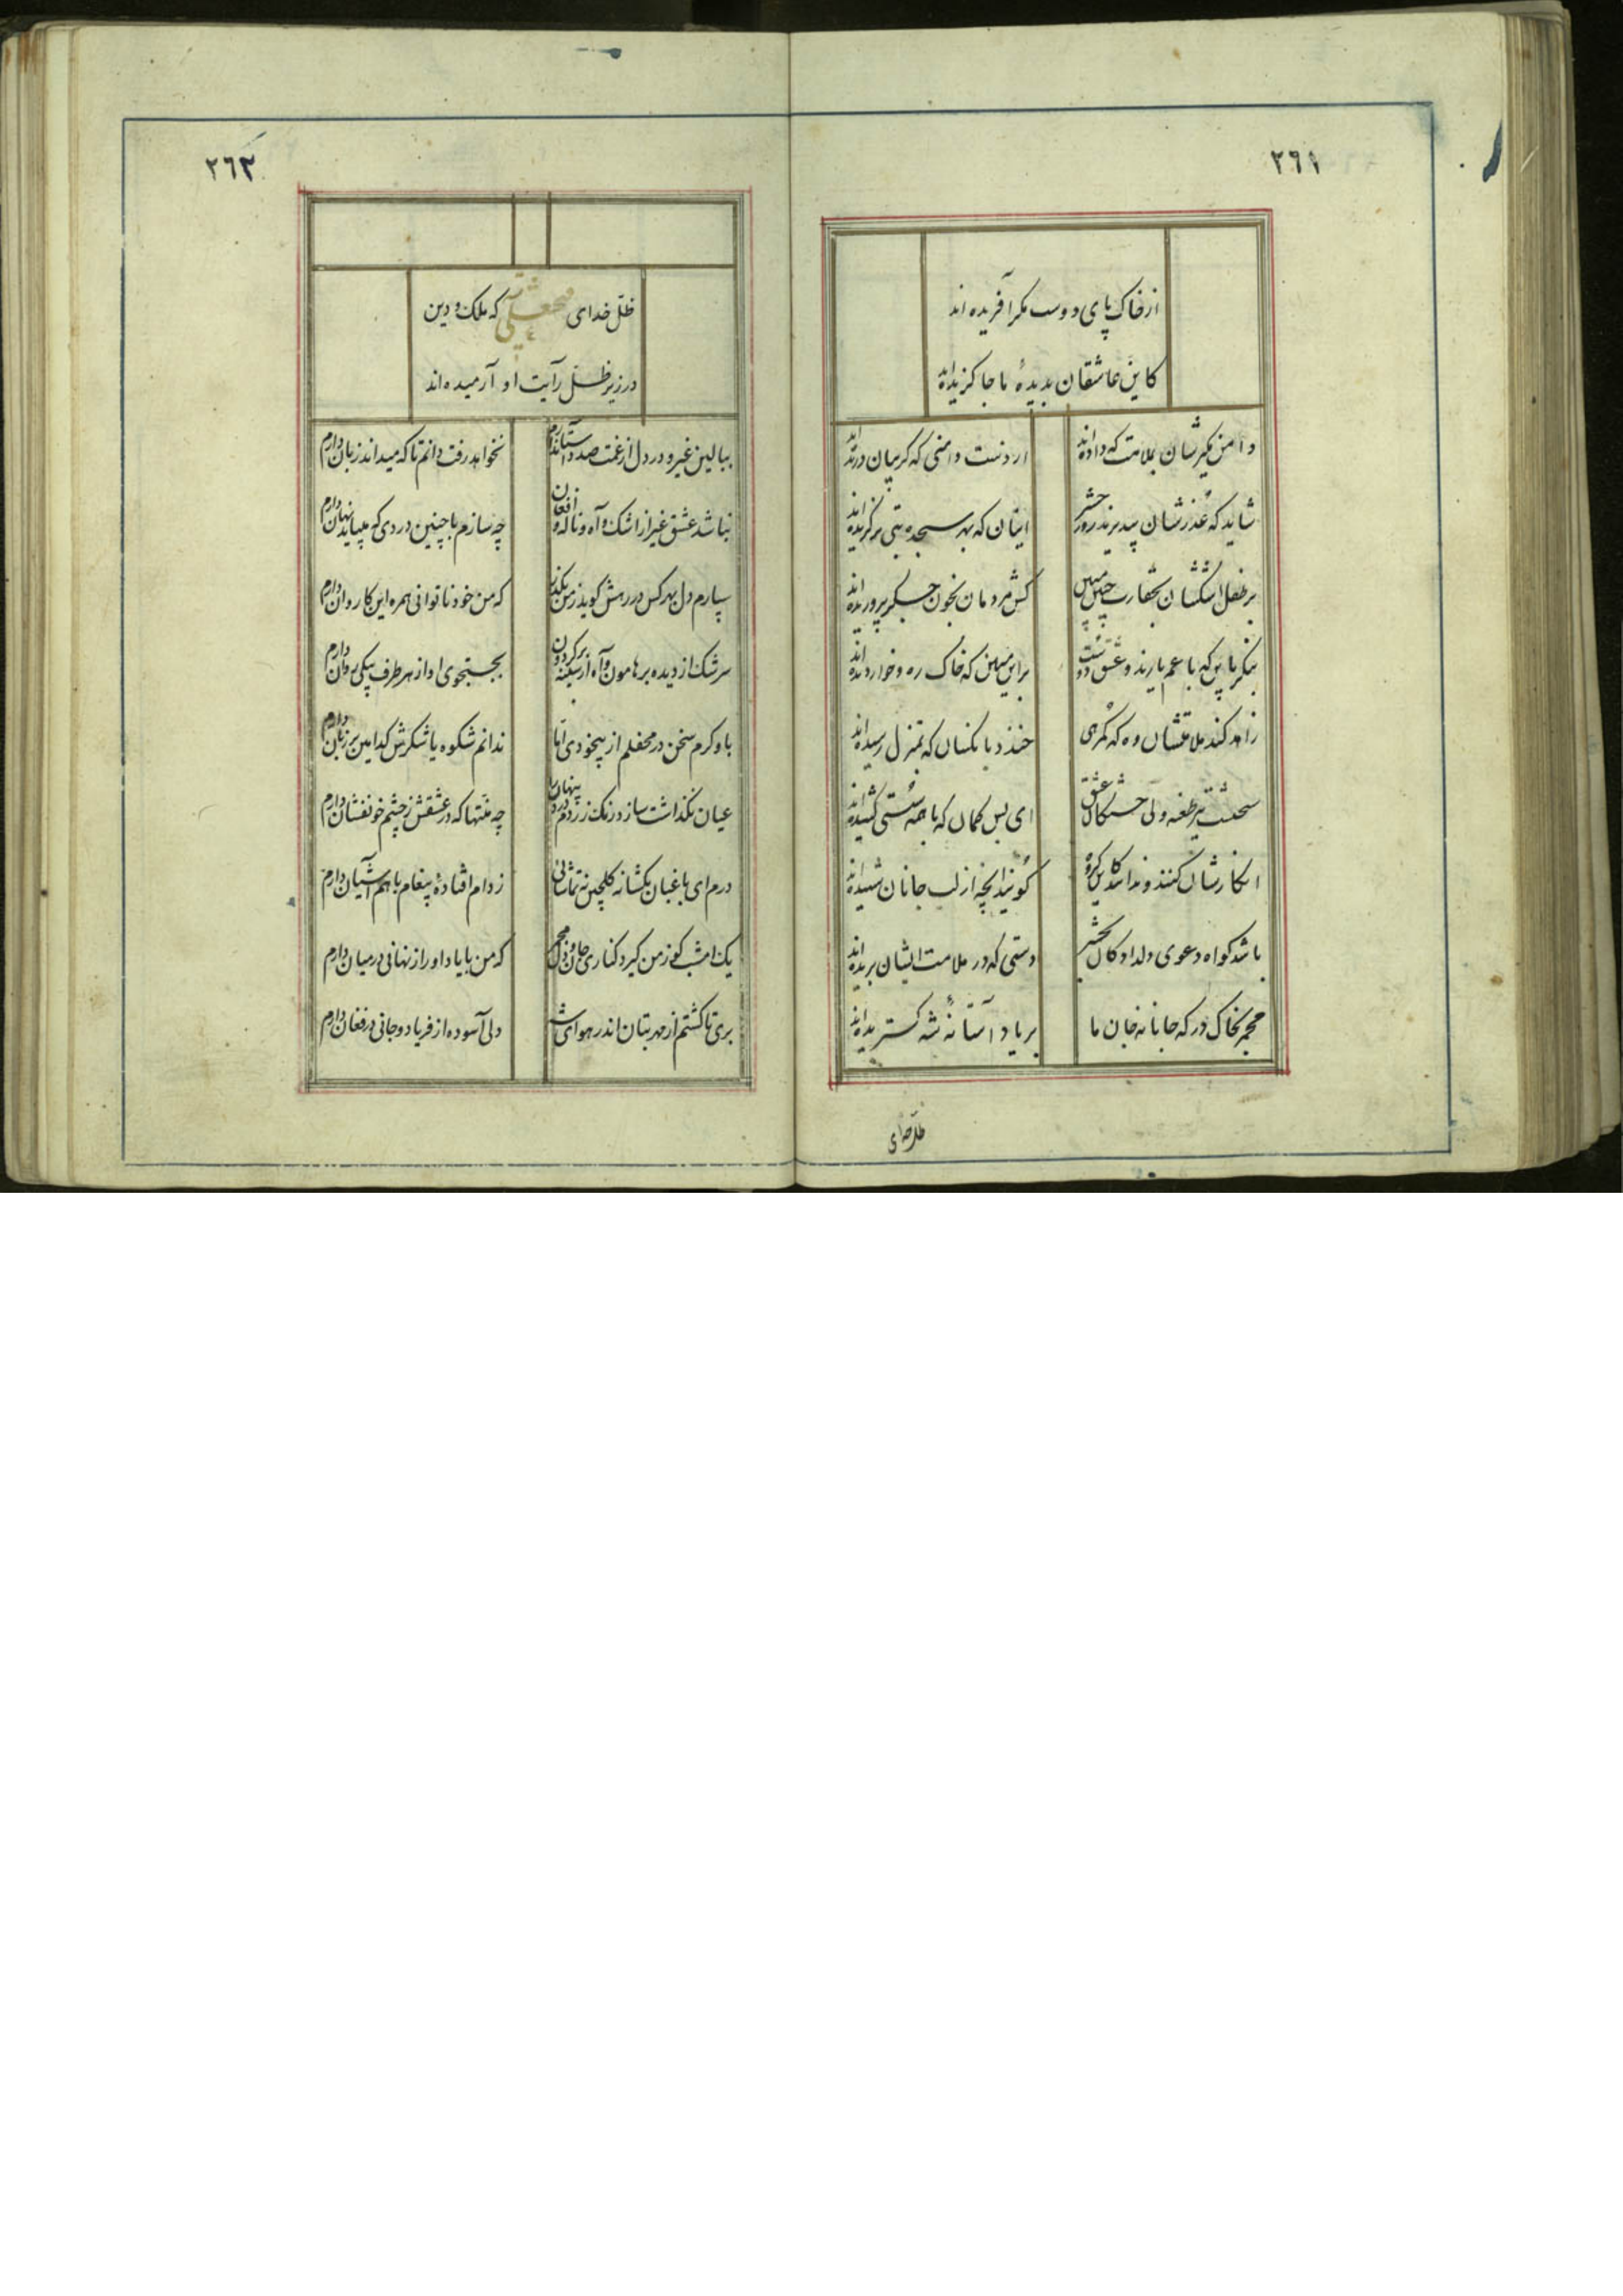 ٢٦١
از خاک پای دوست مگر آفریده اند
کاین عاشقان بدیدهٔ ما جا گزیده اند
دامن مگیرشان بملامت که داده اند از دست دامنی که گریبان دریده اند
شاید که عذرشان بپذیرند روز حشر اینان که بهر سجده بتی برگزیده اند
بر طفل اشکشان بحقارت چنین مبین کش مردمان بخون جگر پروریده اند
بنگر باین که با غم یارند و عشق دوست براین مبین که خاک ره و خوار دیده اند
زاهد کند ملامتشان وه که گمرهی خندد بناکسان که بمنزل رسیده اند
سختست تیر طعنه ولی خستگان عشق ای بس کمان که با همه سستی کشیده اند
انکارشان کنند و ندانند کاین گروه گویند آنچه از لب جانان شنیده اند
باشد گواه دعوی دلدادگان بحشر دستی که در ملامت ایشان بریده اند
مجمر بخاک درگه جانانه جان ما بر یاد آستانهٔ شه گستریده اند
ظل خدای
٢٦٢
ظلّ خدای فتحعلی که ملک و دین
در زیر ظلّ رایت او آرمیده اند
ببالین غیر و در دل از غمت صد داستان دارم نخواهد رفت دانم تا که میداند زبان دارم
نباشد عشق غیر از اشک و آه و ناله و افغان چه سازم با چنین دردی که میباید نهان دارم
سپارم دل بهر کس در رهش گوید ز من بگذر که من خود ناتوانی همره این کاروان دارم
سرشک از دیده بر هامون و آه از سینه بر گردون بجستجوی او از هر طرف پیکی روان دارم
باو گرم سخن در محفلم از بیخودی امّا ندانم شکوه یا شکرش کدامین بر زبان دارم
عیان نگذاشت سازد رنگ زردم درد پنهان را چه منّتها که در عشقش ز چشم خونفشان دارم
درم ای باغبان بگشا نه گلچین نه تماشائی ز دام افتادهٔ پیغام با هم آشیان دارم
یک امشب گو ز من گیرد کناری جان و دل مجمر که من با یاد او راز نهانی در میان دارم
بری تا گشتم از مهر بتان اندر هوای شه دلی آسوده از فریاد و جانی در فغان دارم